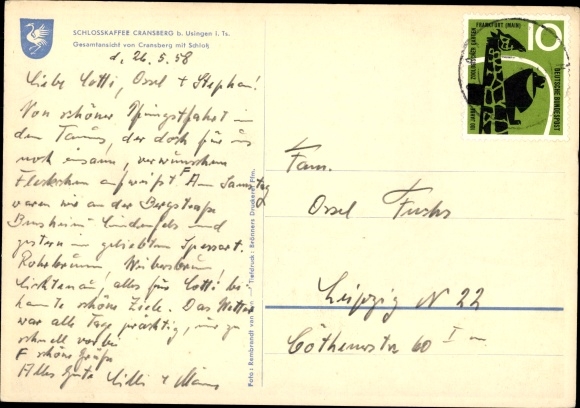 SCHLOSSKAFFEE CRANSBERG b. Usingen i. Ts.
Gesamtansicht von Cransberg mit Schloß
d. 26.5.58
Liebe Lotti, Ossel + Stephan!
Von schöner Pfingstfahrt in
den Taunus, der doch für uns
noch einsame, verwunschene
Fleckchen aufweist F Am Samstag
waren wir an der Bergstraße
Bensheim Lindenfels und
gestern im geliebten Spessart.
Rohrbrunn, Weibersbrunn,
Lichtenau, alles für Lotti be-
kannte schöne Ziele. Das Wetter
war alle Tage prächtig, nur zu
schnell vorbei
F schöne Grüße
Alles Gute Lilli + Hans
Foto: Rembrandt von Tiefdruck: Brönners Druckerei Ffm.
FRANKFURT (MAIN)
10
DEUTSCHE BUNDESPOST
Fam.
Ossel Fuchs
Leipzig N 22
Cöthenerstr 60 I